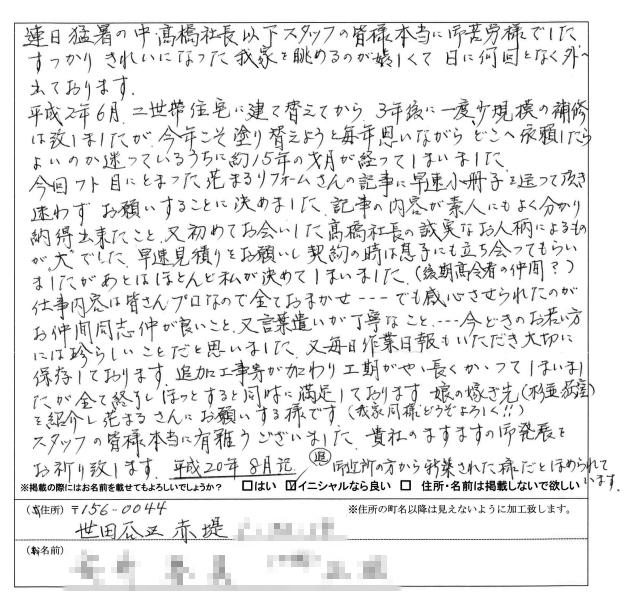 連日猛暑の中、高橋社長以下スタッフの皆様本当に御苦労様でした
すっかりきれいになった我家を眺めるのが嬉しくて日に何回となく外へ
出ております。
平成2年6月、二世帯住宅に建て替えてから、3年後に一度少規模の補修
は致しましたが、今年こそ塗り替えようと毎年思いながらどこへ依頼したら
よいのか迷っているうちに約15年の才月が経ってしまいました
今回フト目にとまった花まるリフォームさんの記事に早速小冊子を送って頂き
迷わずお願いすることに決めました、記事の内容が素人にもよく分かり
納得出来たこと、又初めてお会いした高橋社長の誠実なお人柄によるもの
が大でした、早速見積りをお願いし契約の時は息子にも立ち会ってもらい
ましたがあとはほとんど私が決めてしまいました、(後期高令者の仲間?)
仕事内容は皆さんプロなので全ておまかせ---でも感心させられたのが
お仲間同志仲が良いこと、又言葉遣いが丁寧なこと、---今どきのお若い方
には珍らしいことだと思いました、又毎日作業日報もいただき大切に
保存しております、追加工事等が加わり工期がやゝ長くかゝってしまいまし
たが全て終了しほっとすると同時に満足しております 娘の嫁ぎ先(杉並
を紹介し花まるさんにお願いする様です(我家同様どうぞよろしく!!)
スタッフの皆様本当に有難うございました、貴社のますますの御発展を
お祈り致します、平成20年8月記
追 御近所の方から新築された様だとほめられて
います、
※掲載の際にはお名前を載せてもよろしいでしょうか? □はい ☑イニシャルなら良い □ 住所・名前は掲載しないで欲しい
(ご住所) 〒156-0044 ※住所の町名以降は見えないように加工致します。
世田谷区赤堤
(お名前)